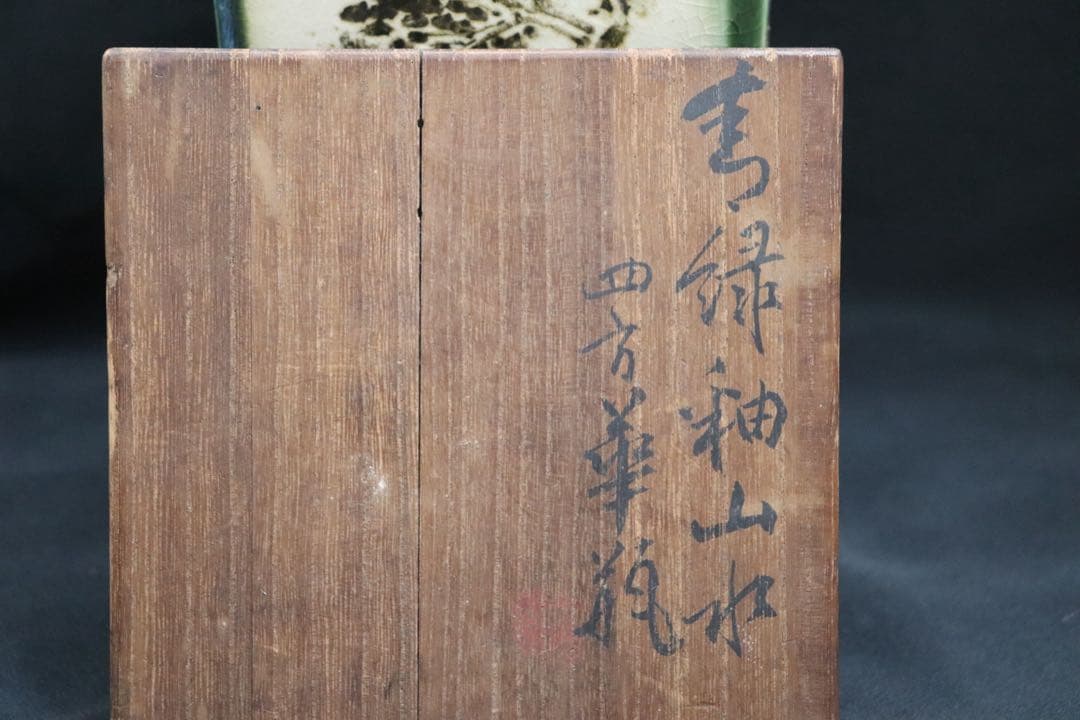 青緑釉山水
四方華瓶